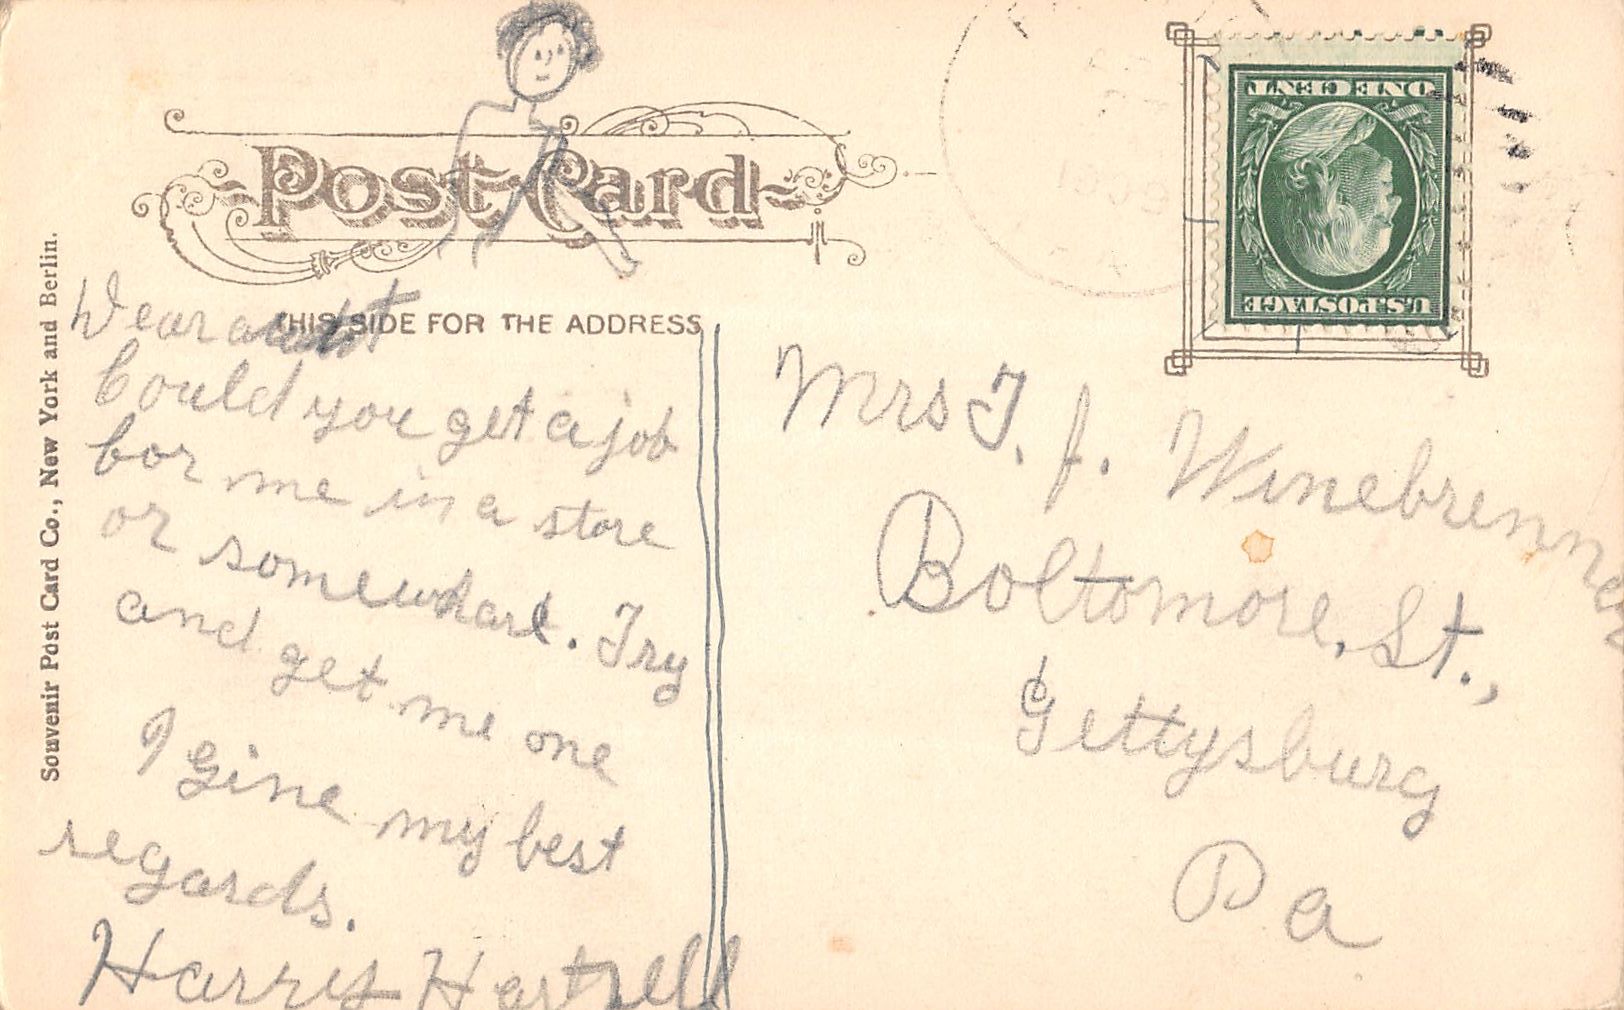 Post Card
THIS SIDE FOR THE ADDRESS
Souvenir Post Card Co., New York and Berlin.
U.S. POSTAGE
ONE CENT
Dear aunt
Could you get a job
for me in a store
or somewhare. Try
and get me one
I give my best
regards.
Harry Hartzell
Mrs T. J. Winebrenner
Boltomore, St.,
Gettysburg
Pa